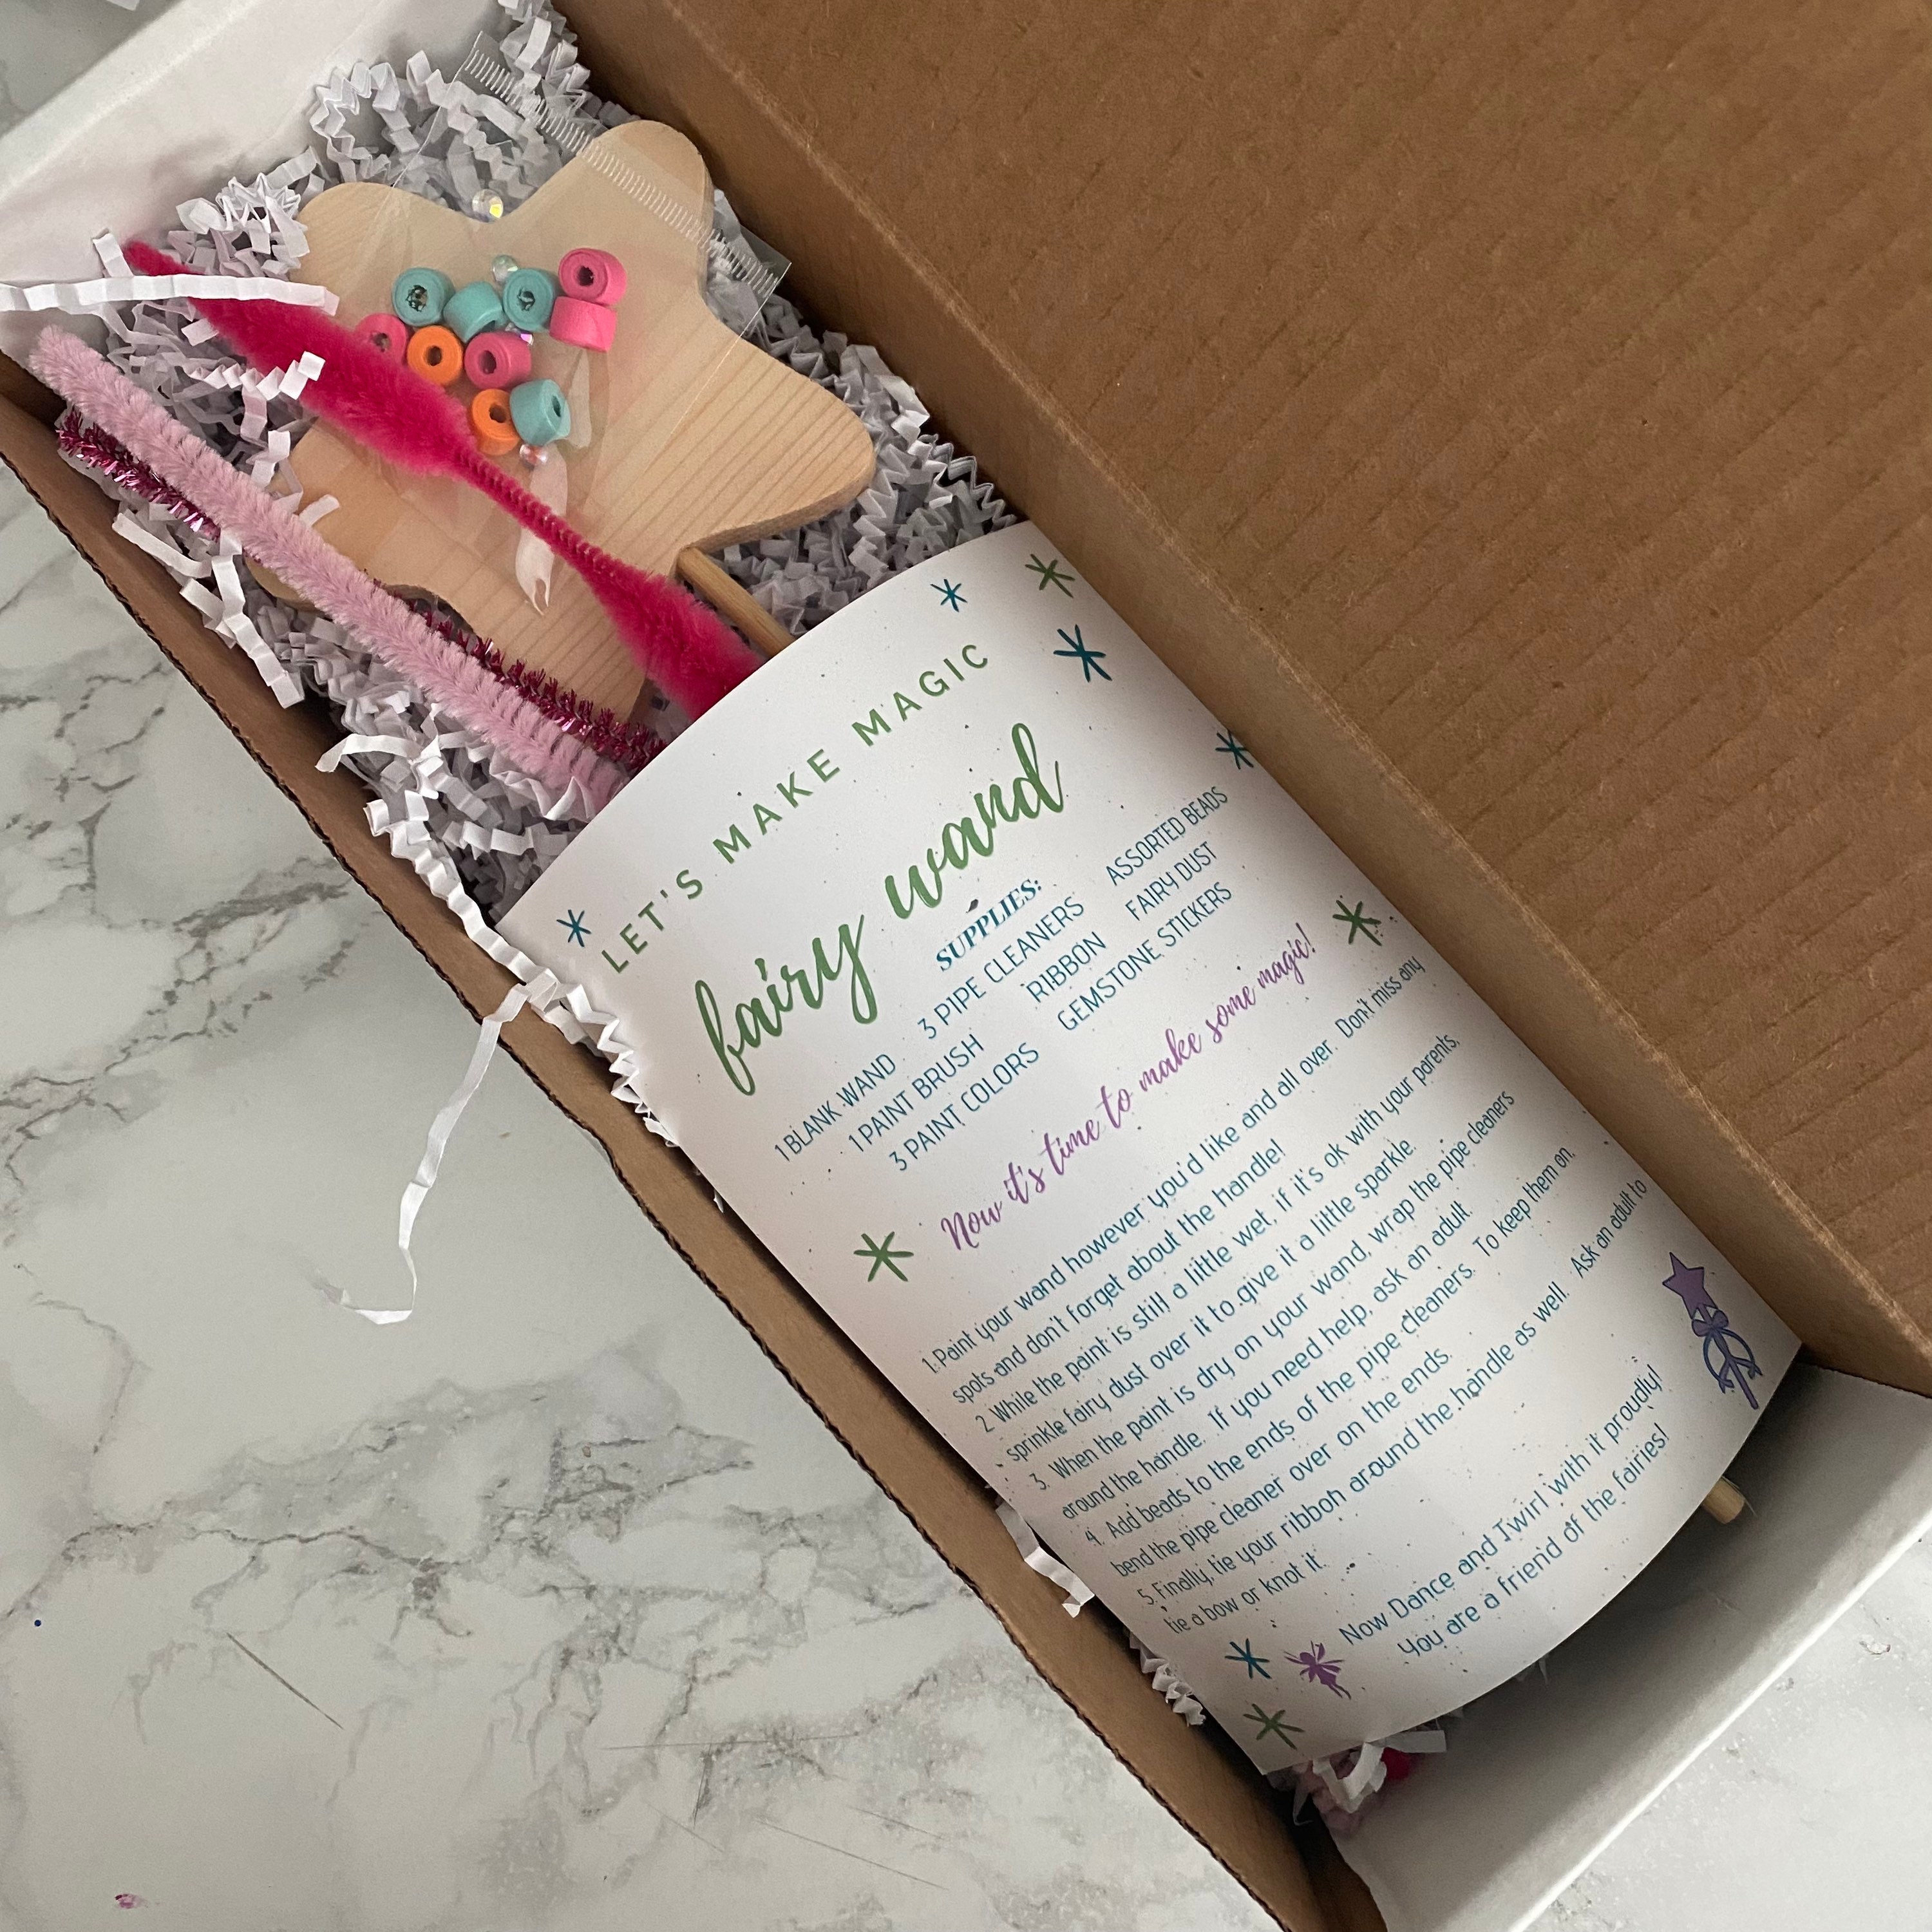 LET'S MAKE MAGIC
fairy wand
SUPPLIES:
1 BLANK WAND 3 PIPE CLEANERS ASSORTED BEADS
1 PAINT BRUSH RIBBON FAIRY DUST
3 PAINT COLORS GEMSTONE STICKERS
Now it's time to make some magic!
1. Paint your wand however you'd like and all over. Don't miss any
spots and don't forget about the handle!
2. While the paint is still a little wet, if it's ok with your parents,
sprinkle fairy dust over it to give it a little sparkle.
3. When the paint is dry on your wand, wrap the pipe cleaners
around the handle. If you need help, ask an adult.
4. Add beads to the ends of the pipe cleaners. To keep them on,
bend the pipe cleaner over on the ends.
5. Finally, tie your ribbon around the handle as well. Ask an adult to
tie a bow or knot it.
Now Dance and Twirl with it proudly!
You are a friend of the fairies!